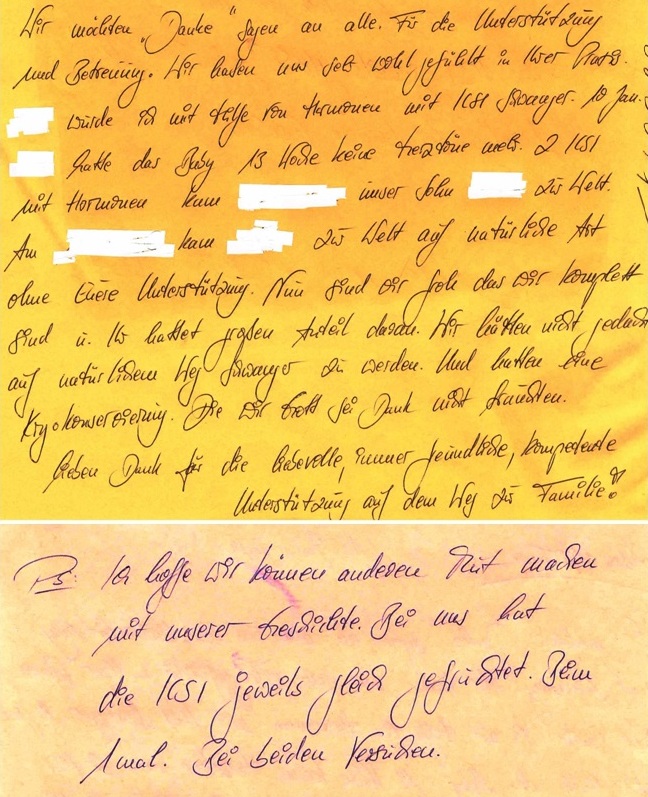 Wir möchten „Danke" sagen an alle. Für die Unterstützung
und Betreuung. Wir haben uns sehr wohl gefühlt in Ihrer Praxis.
wurde ich mit Hilfe von Hormonen mit ICSI schwanger. 10 Jan.
hatte das Baby 13 Woche keine Herztöne mehr. 2 ICSI
mit Hormonen kam unser Sohn zur Welt.
Am kam zur Welt auf natürliche Art
ohne Euere Unterstützung. Nun sind wir froh das wir komplett
sind u. Ihr hattet großen Anteil daran. Wir hätten nicht gedacht
auf natürlichem Weg schwanger zu werden. Und hatten eine
Kryokonservierung. Die wir Gott sei Dank nicht brauchten.
Lieben Dank für die liebevolle, immer freundliche, kompetente
Unterstützung auf dem Weg zur Familie!
PS: Ich hoffe wir können anderen Mut machen
mit unserer Geschichte. Bei uns hat
die ICSI jeweils gleich gefruchtet. Beim
1 mal. Bei beiden Versuchen.